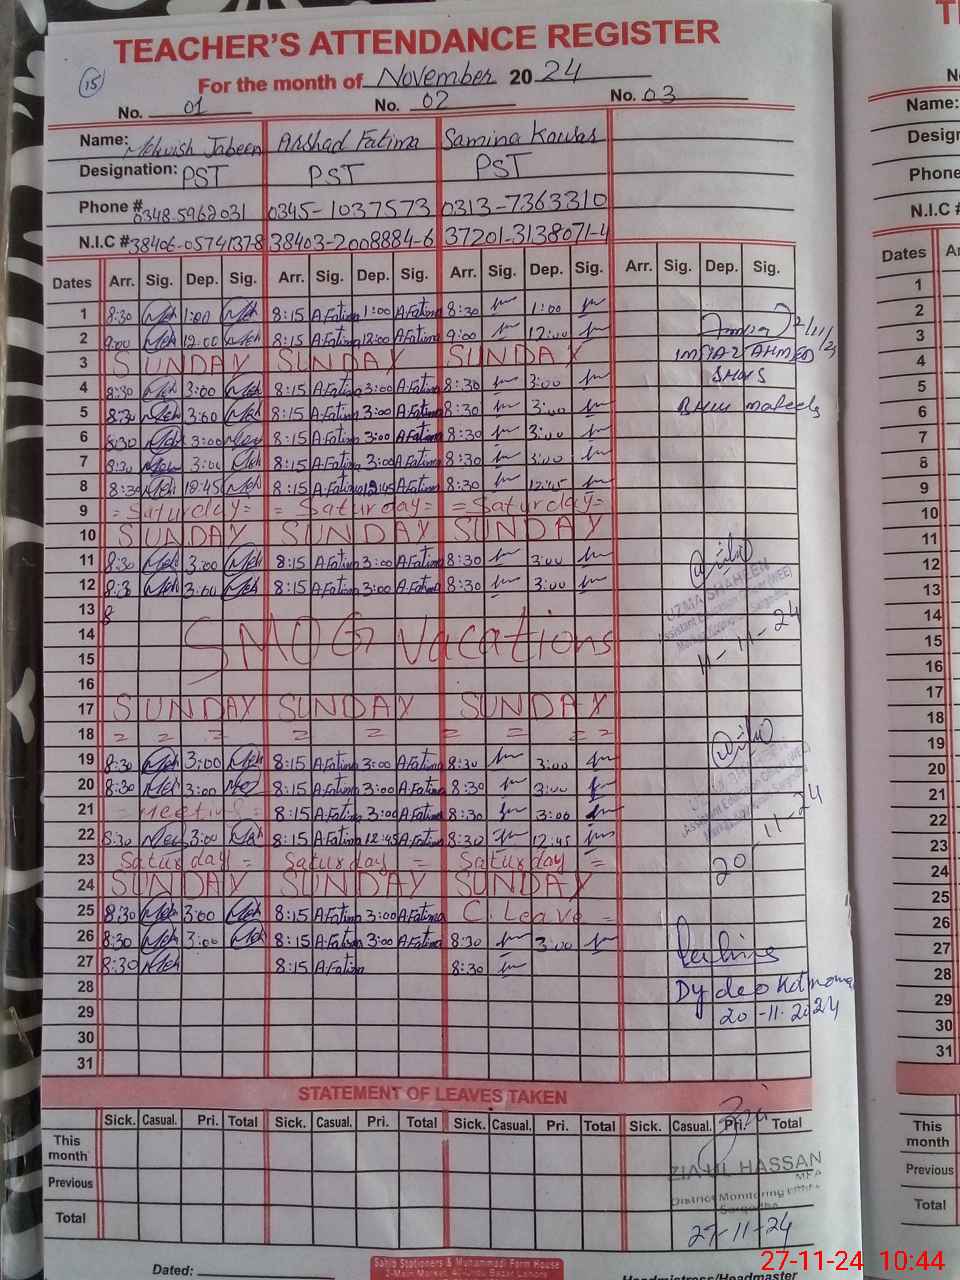 TEACHER'S ATTENDANCE REGISTER
15 For the month of November 2024
No. 01 No. 02 No. 03
Name: Mehvish Jabeen Arshad Fatima Samina Kawsar
Designation: PST PST PST
Phone # 0348-5962031 0345-1037573 0313-7363310
N.I.C # 38406-0574137-8 38403-2008884-6 37201-3138071-4
Dates Arr. Sig. Dep. Sig. Arr. Sig. Dep. Sig. Arr. Sig. Dep. Sig. Arr. Sig. Dep. Sig.
1 8:30 Meh 1:00 Meh 8:15 A.Fatima 1:00 A.Fatima 8:30 1:00
2 9:00 Meh 12:00 Meh 8:15 A.Fatima 12:00 A.Fatima 9:00 12:00
3 SUNDAY SUNDAY SUNDAY
IMTIAZ AHMED
4 8:30 Meh 3:00 Meh 8:15 A.Fatima 3:00 A.Fatima 8:30 3:00
5 8:30 Meh 3:00 Meh 8:15 A.Fatima 3:00 A.Fatima 8:30 3:00
6 8:30 Meh 3:00 Meh 8:15 A.Fatima 3:00 A.Fatima 8:30 3:00
7 8:30 Meh 3:00 Meh 8:15 A.Fatima 3:00 A.Fatima 8:30 3:00
8 8:30 Meh 12:45 Meh 8:15 A.Fatima 12:45 A.Fatima 8:30 12:45
9 = Saturday = = Saturday = = Saturday =
10 SUNDAY SUNDAY SUNDAY
11 8:30 Meh 3:00 Meh 8:15 A.Fatima 3:00 A.Fatima 8:30 3:00
12 8:3 Meh 3:00 Meh 8:15 A.Fatima 3:00 A.Fatima 8:30 3:00
UZMA SHAHEEN
Assistant Education Officer (WEE)
13 8
14 SMOG Vacations
11-11-24
15
16
17 SUNDAY SUNDAY SUNDAY
18 = = = = = = = = =
19 8:30 Meh 3:00 Meh 8:15 A.Fatima 3:00 A.Fatima 8:30 3:00
20 8:30 Meh 3:00 Meh 8:15 A.Fatima 3:00 A.Fatima 8:30 3:00
21 = Meeting = 8:15 A.Fatima 3:00 A.Fatima 8:30 3:00
22 8:30 Meh 3:00 Meh 8:15 A.Fatima 12:45 A.Fatima 8:30 12:45
23 Saturday = Saturday = Saturday =
20 11-24
24 SUNDAY SUNDAY SUNDAY
25 8:30 Meh 3:00 Meh 8:15 A.Fatima 3:00 A.Fatima C. Leave =
26 8:30 Meh 3:00 Meh 8:15 A.Fatima 3:00 A.Fatima 8:30 3:00
27 8:30 Meh 8:15 A.Fatima 8:30
28
Dy deo
29
20-11-2024
30
31
STATEMENT OF LEAVES TAKEN
Sick. Casual. Pri. Total Sick. Casual. Pri. Total Sick. Casual. Pri. Total Sick. Casual. Pri. Total
This month
Previous
Total
ZIA UL HASSAN
District Monitoring
Sargodha
27-11-24
Dated:
Sahib Stationers & Muhammadi Form House
Headmistress/Headmaster
T
Name:
Design
Phone
N.I.C #
Dates
1
2
3
4
5
6
7
8
9
10
11
12
13
14
15
16
17
18
19
20
21
22
23
24
25
26
27
28
29
30
31
This month
Previous
Total
27-11-24 10:44